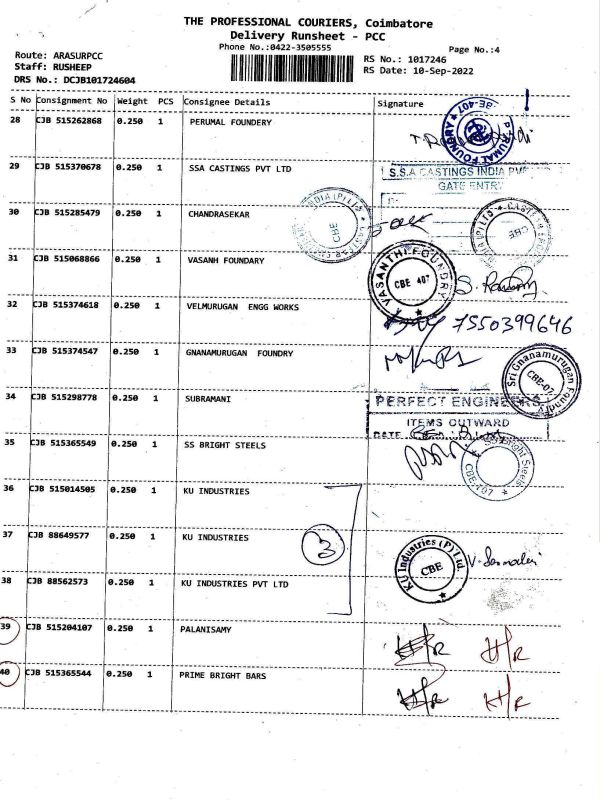 THE PROFESSIONAL COURIERS, Coimbatore
Delivery Runsheet - PCC
Phone No.:0422-3505555
Page No.:4
Route: ARASURPCC
Staff: RUSHEEP
DRS No.: DCJB101724604
RS No.: 1017246
RS Date: 10-Sep-2022
S No Consignment No Weight PCS Consignee Details Signature
28 CJB 515262868 0.250 1 PERUMAL FOUNDERY
29 CJB 515370678 0.250 1 SSA CASTINGS PVT LTD
S.S.A CASTINGS INDIA
GATE ENTRY
30 CJB 515285479 0.250 1 CHANDRASEKAR
CBE
CBE
31 CJB 515068866 0.250 1 VASANH FOUNDARY
VASANTHI FOUNDRY
CBE 407
32 CJB 515374618 0.250 1 VELMURUGAN ENGG WORKS
7550399646
33 CJB 515374547 0.250 1 GNANAMURUGAN FOUNDRY
Sri Gnanamurugan Foundry
CBE-07
34 CJB 515298778 0.250 1 SUBRAMANI
PERFECT ENGINEERS
ITEMS OUTWARD
DATE
35 CJB 515365549 0.250 1 SS BRIGHT STEELS
SS Bright Steels
CBE-407
36 CJB 515014505 0.250 1 KU INDUSTRIES
37 CJB 88649577 0.250 1 KU INDUSTRIES
3
KU Industries (P) Ltd
CBE
38 CJB 88562573 0.250 1 KU INDUSTRIES PVT LTD
39 CJB 515204107 0.250 1 PALANISAMY
40 CJB 515365544 0.250 1 PRIME BRIGHT BARS